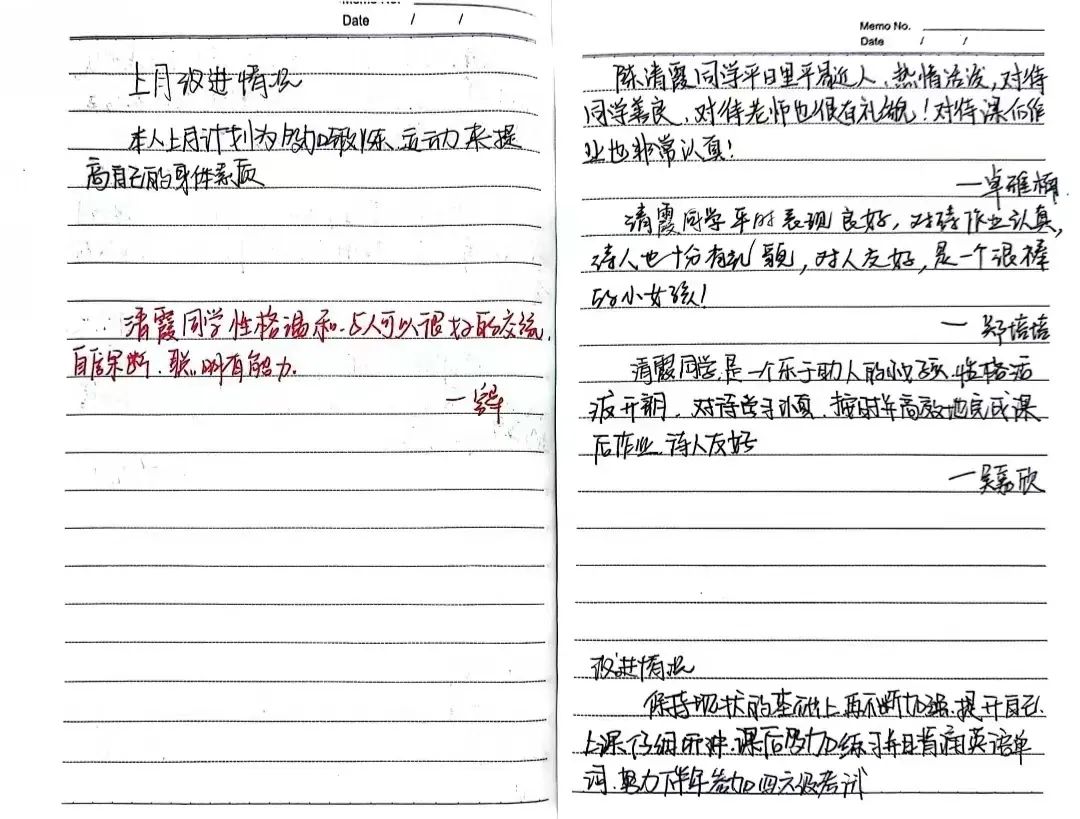 Date / /
上月改进情况
本人上月计划为多加锻炼、运动来提
高自己的身体素质
清霞同学性格温和、与人可以很好的交流,
自信果断、聪明有能力.
一
Memo No.
Date / /
陈清霞同学平日里平易近人、热情活泼,对待
同学善良、对待老师也很有礼貌!对待课后作
业也非常认真!
一卓雅楠
清霞同学平时表现良好,对待作业认真,
待人也十分有礼貌,对人友好,是一个很棒
的小女孩!
一郑培培
清霞同学,是一个乐于助人的小女孩、性格活
泼开朗、对待学习认真、按时并高效地完成课
后作业、待人友好
一吴嘉欣
改进情况
保持现状的基础上再不断加强、提升自己、
上课仔细听讲、课后多加练习并且背诵英语单
词、努力下半年参加四六级考试